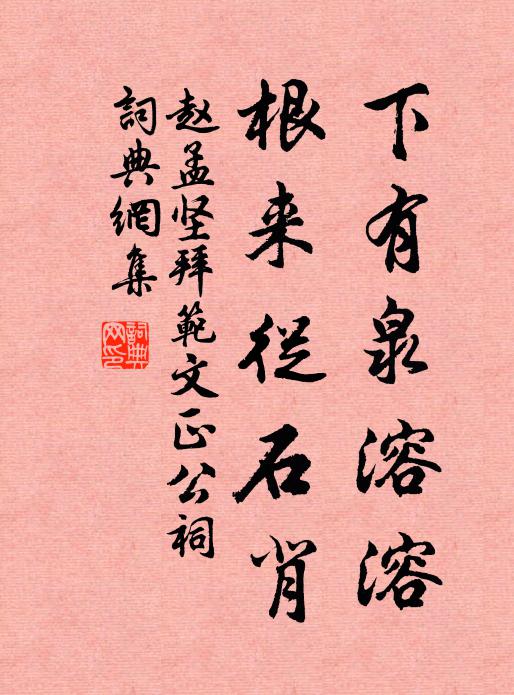 下有泉溶溶
根来從石背
赵孟坚拜範文正公祠
詞典網集
詞典网印